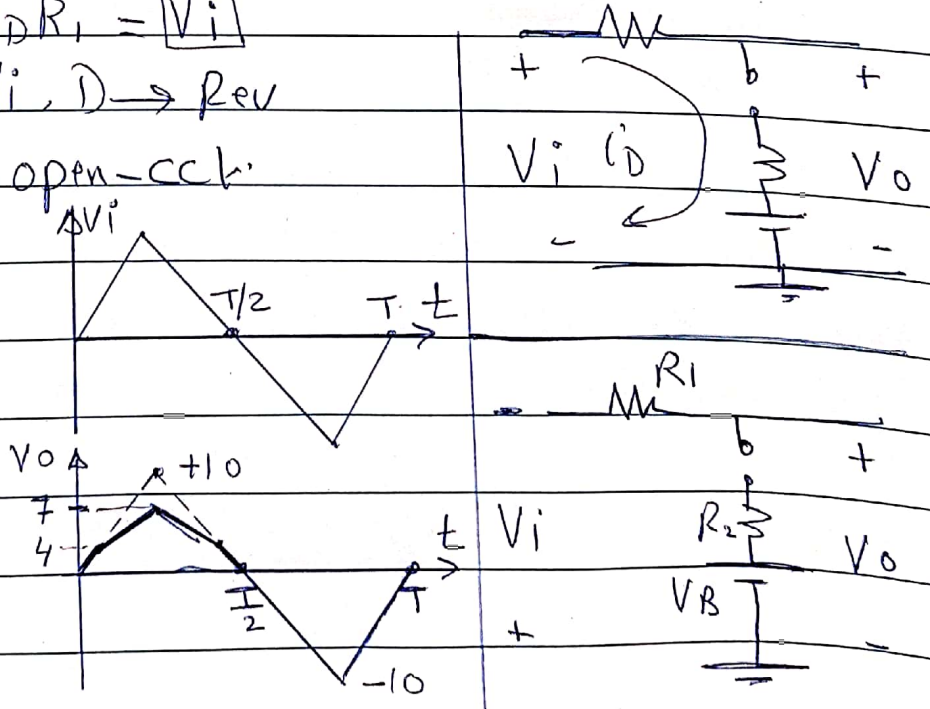 DR1 = Vi
i, D → Rev
open-cck.
Vi
T/2
T
t
Vo
+10
7
4
t
T/2
T
-10
+
+
Vi
iD
Vo
-
-
R1
+
Vi
R2
Vo
VB
+
-